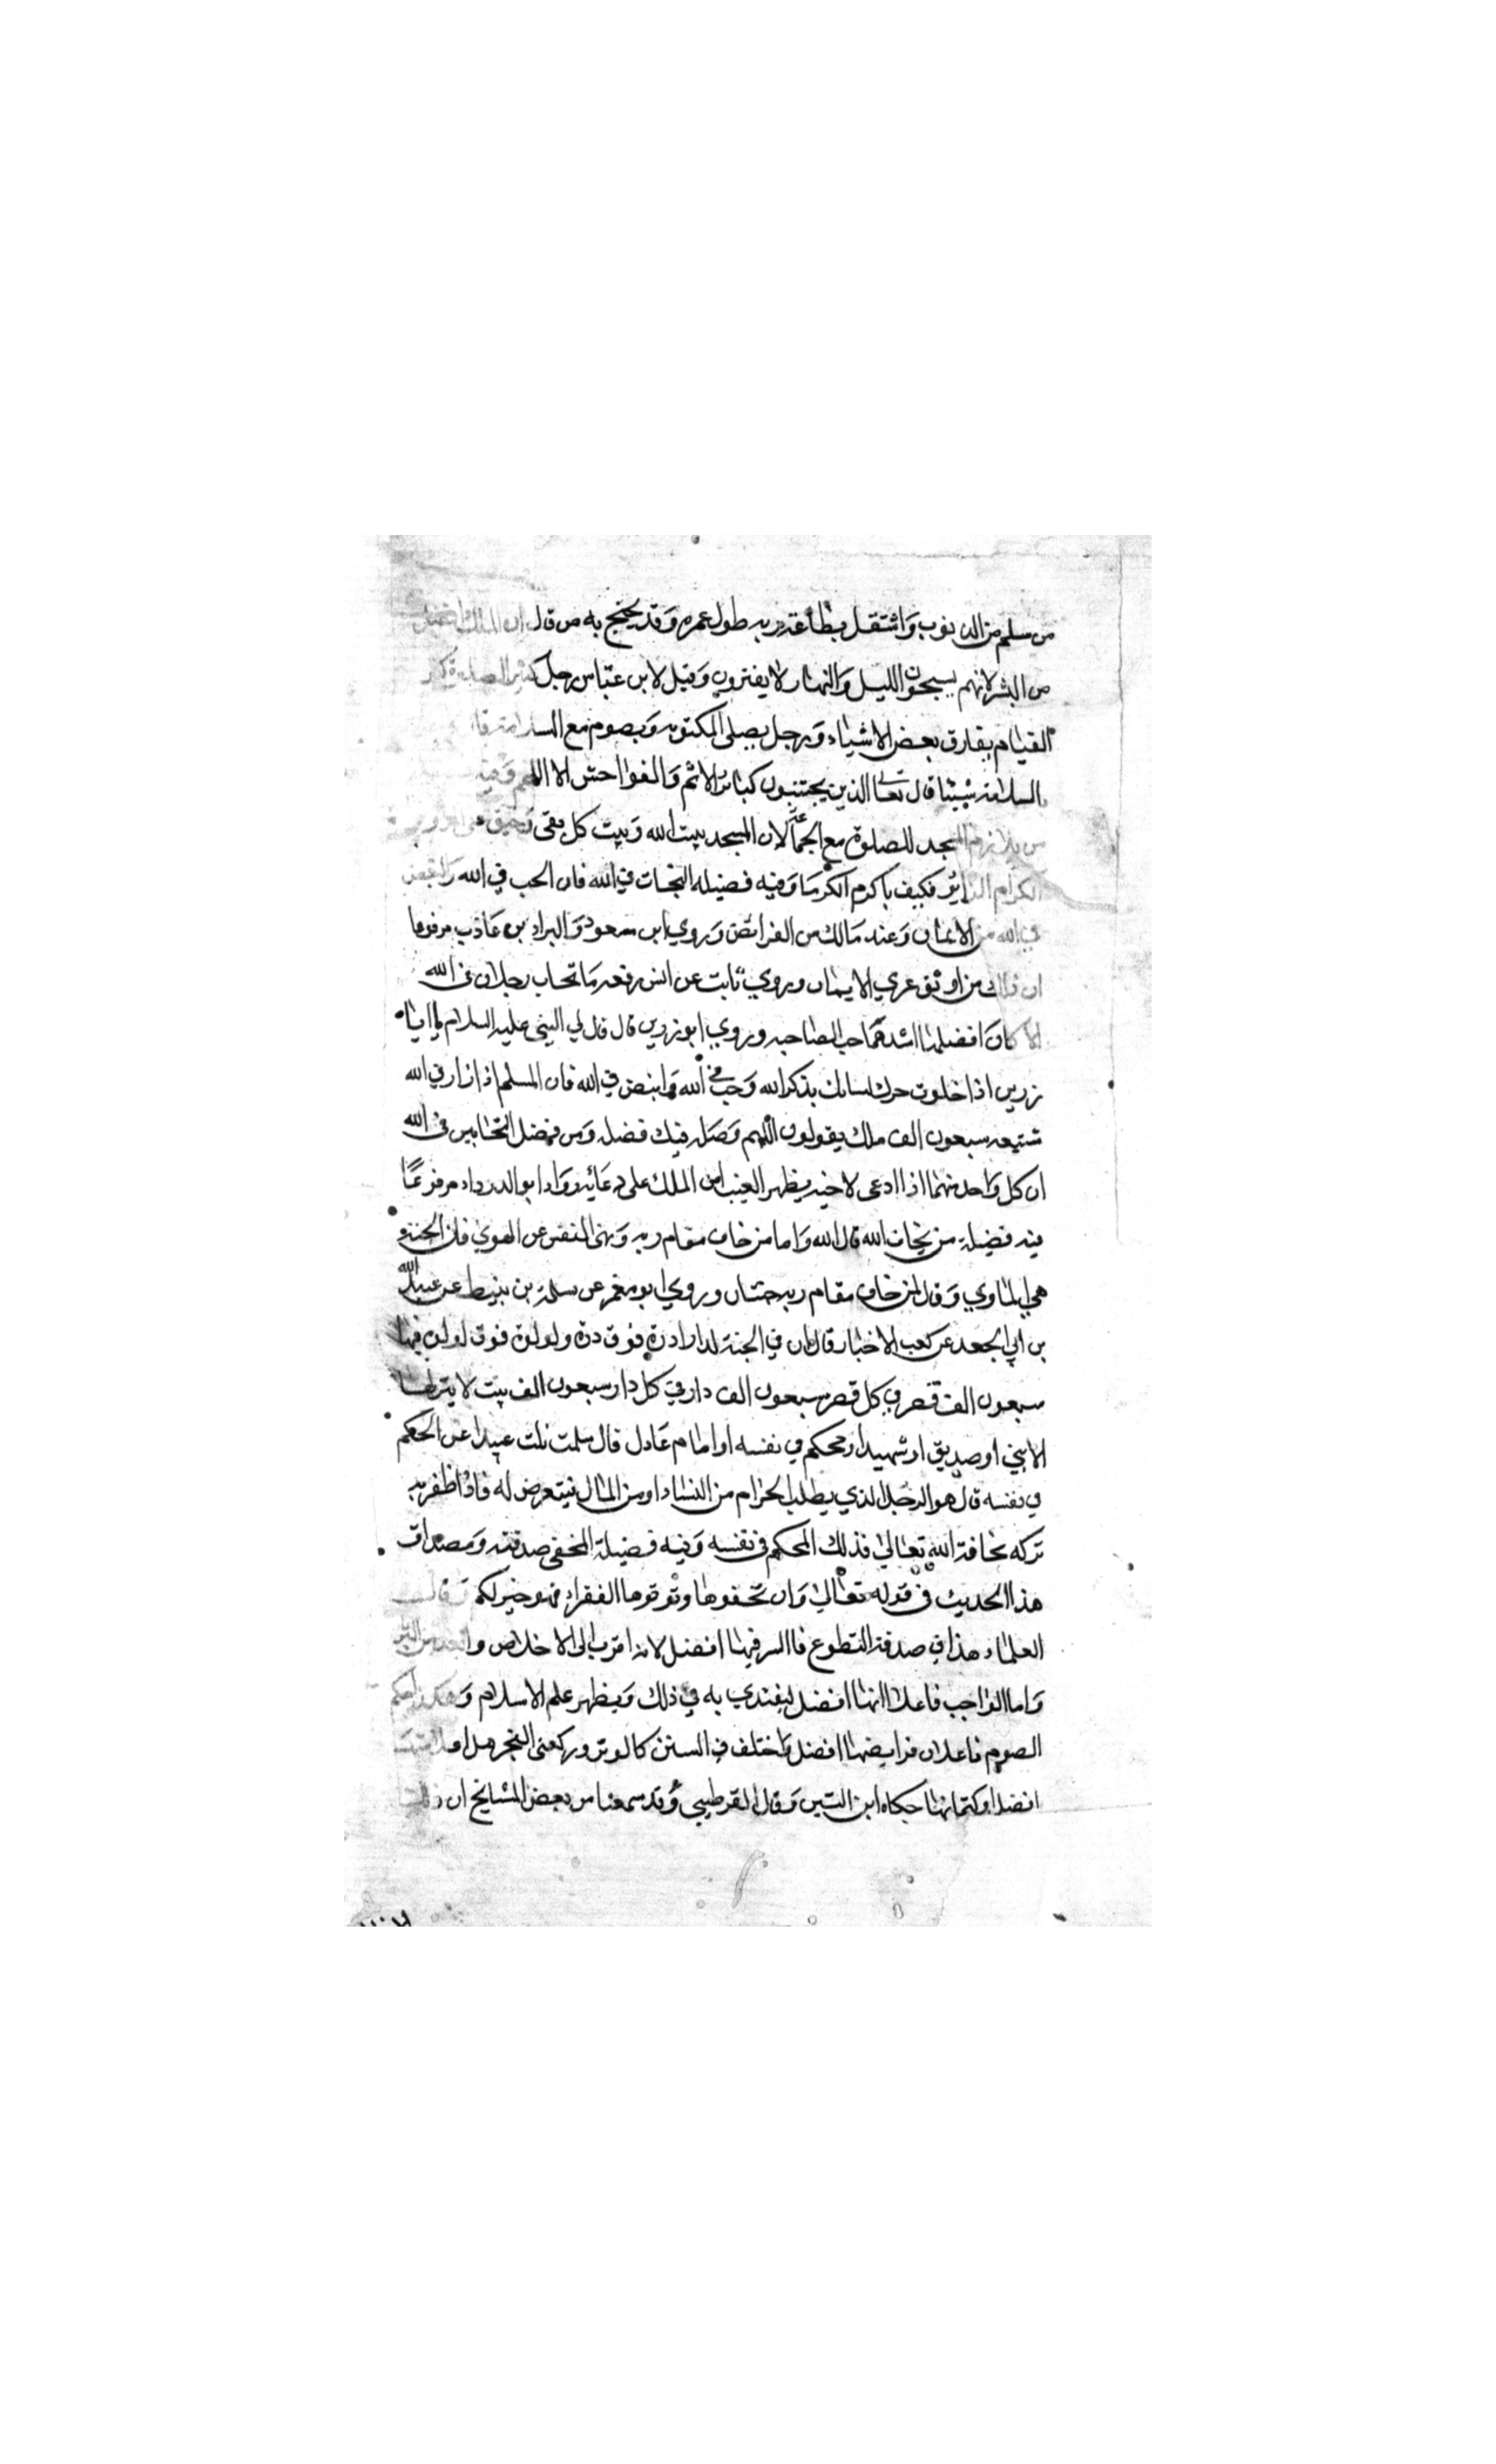 من سلم من الذنوب وَاشتغل بطاعة ربه طول عمره وَقد يحتج به من قال ان الملك افضل
من البشر لانهم يسبحون الليل وَالنهار لا يفترون وَقيل لابن عبّاس رجل كثير الصلوة كثير
القيام يقارف بعض الاشياء وَرجل يصلي المكتوبه وَيصوم مع السلامة قال
السلامة شيئا قال تعالى الذين يجتنبون كبائر الاثم وَالفواحش الا اللمم وَفيه
من يلازم المسجد للصلوة مع الجماعة لان المسجد بيت الله وَبيت كل تقي وَحقيق على المزور
اكرام الزائر فكيف باكرم الكرمَا وَفيه فضيله التحاب في الله فان الحب في الله وَالبغض
في الله من الايمان وَعند مَالك من الفرائض وَروي ابن مسعود وَالبراء بن عَاذب مرفوعا
ان ذلك من اوثق عري الايمان وروي ثابت عن انس رفعه مَا تحاب رجلان في الله
الا كانَ افضلهما اشدهمَا حبا لصاحبه وروي ابو زرين قال قال لي النبي عليه السلام يا ابا
زرين اذا خلوت حرك لسانك بذكر الله وَحب في الله وَابغض في الله فان المسلم اذا زار في الله
شيعه سبعون الف ملك يقولون اللهم وَصله فيك فصله وَمن فضل المتحابين في الله
ان كل وَاحد منهما اذا ادعى لاخيه بظهر الغيب امن الملك على دعَائه وَواه ابو الدرداء مرفوعًا
فيه فضيلة من يخاف الله قال الله وَاما من خاف مقام ربه وَنهى النفس عن الهوي فان الجنة
هي الماوي وَقال لمن خاف مقام ربه جنتان وروي ابو معمر عن سلمة بن نبيط عن عبيد الله
بن ابي الجعد عن كعب الاخبار قال ان في الجنة لدارا درة فوق درة ولولوة فوق لولوة فيها
سبعون الف قصر في كل قصر سبعون الف دار في كل دار سبعون الف بيت لا ينزلها
الا نبي او صديق او شهيد او محكم في نفسه او امام عَادل قال سلمت نلت عبيدا عن المحكم
في نفسه قال هو الرجل الذي يطلب الحرام من النساء او من المال فيتعرض له فاذا ظفر به
تركه مخافة الله تعالى فذلك المحكم في نفسه وَفيه فضيلة المخفي صدقته وَمصداق
هذا الحديث في قوله تعالى وَان تخفوها وتوتوها الفقراء فهو خير لكم قالت
العلماء هذا في صدقة التطوع فالسر فيها افضل لانه اقرب الى الاخلاص وابعد من الريا
وَاما الواجب فاعلانها افضل ليقتدي به في ذلك وَيظهر علم الاسلام وَهكذا حكم
الصوم فاعلان فرايضها افضل وَاختلف في السنن كالوتر وركعتي الفجر هل اعلانها
افضل او كتمانها حكاه ابن التين وَقال القرطبي وَقد سمعنا من بعض المشايخ ان ذلك